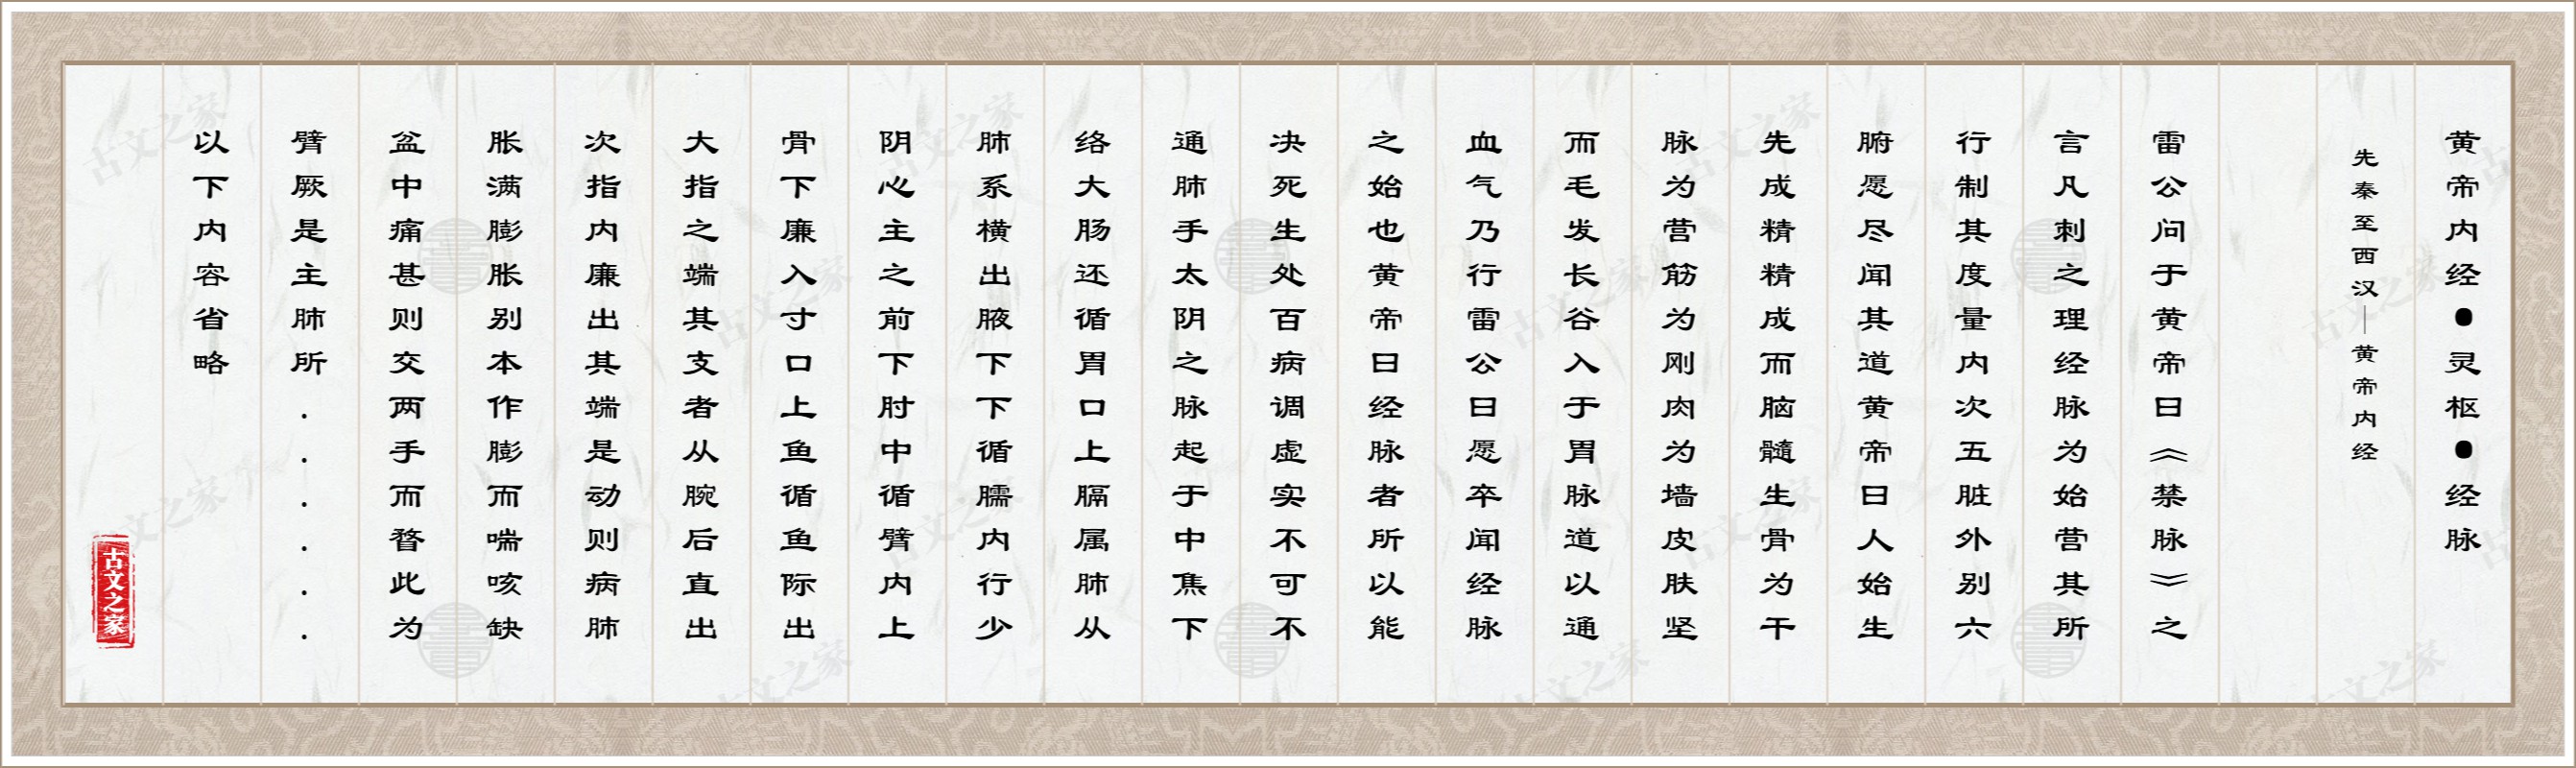 黄帝内经●灵枢●经脉
先秦至西汉—黄帝内经
雷公问于黄帝曰《禁脉》之
言凡刺之理经脉为始营其所
行制其度量内次五脏外别六
腑愿尽闻其道黄帝曰人始生
先成精精成而脑髓生骨为干
脉为营筋为刚肉为墙皮肤坚
而毛发长谷入于胃脉道以通
血气乃行雷公曰愿卒闻经脉
之始也黄帝曰经脉者所以能
决死生处百病调虚实不可不
通肺手太阴之脉起于中焦下
络大肠还循胃口上膈属肺从
肺系横出腋下下循臑内行少
阴心主之前下肘中循臂内上
骨下廉入寸口上鱼循鱼际出
大指之端其支者从腕后直出
次指内廉出其端是动则病肺
胀满膨胀别本作膨而喘咳缺
盆中痛甚则交两手而瞀此为
臂厥是主肺所......
以下内容省略
古文之家